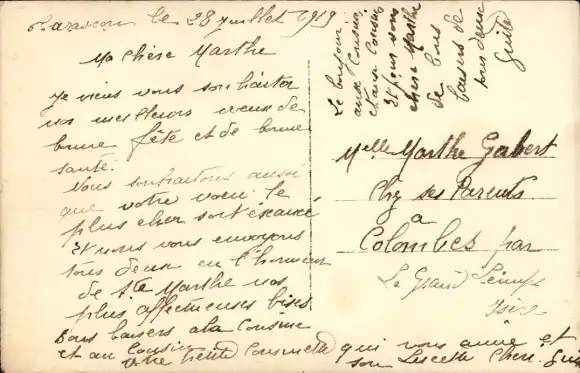 Tarascon le 28 juillet 1919
Ma chère Marthe
Je viens vous souhaiter
nos meilleurs voeux de
bonne fête et de bonne
santé.
Nous souhaitons aussi
que votre voeu le
plus cher soit éxaucé
Et nous vous envoyons
tous deux en l'honneur
de Ste Marthe nos
plus affectueuses bises
Bons baisers a la Cousine
et au Cousin
votre petite Cousinette qui vous aime et
son
Le bonjour
aux Cousins
et aux Cousines
Et pour vous
chère Marthe
de bons
baisers de
tous deux
Melle Marthe Gabert
Chz ses Parents
a
Colombes par
Le Grand Lemps
Isère